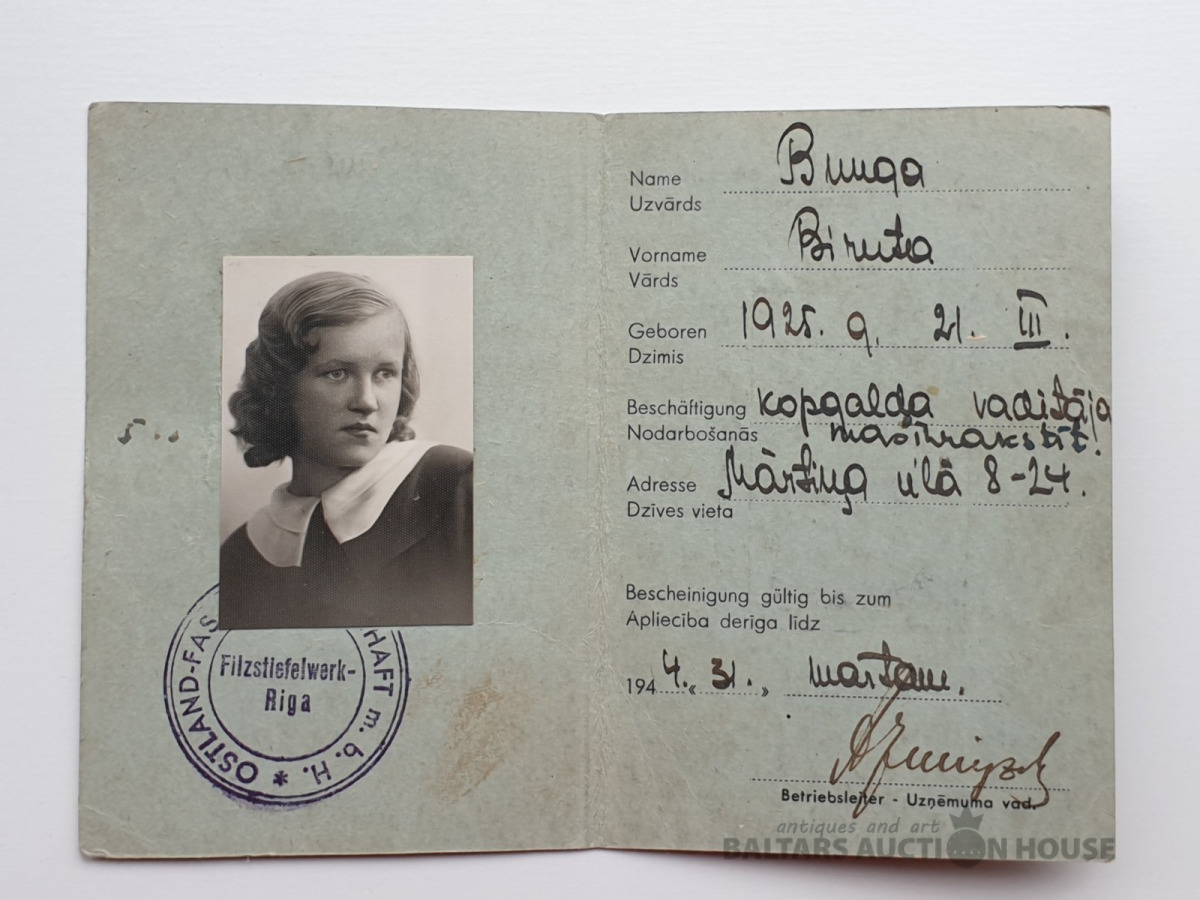 Name Bunga
Uzvārds
Vorname Biruta
Vārds
Geboren 1925. g. 21. III.
Dzimis
Beschäftigung kopgalda vadītāja
Nodarbošanās mašīnrakstīt.
Adresse Mārtiņa ielā 8-24.
Dzīves vieta
Bescheinigung gültig bis zum
Apliecība derīga līdz
1944. „31.” martam.
Betriebsleiter - Uzņēmuma vad.
OSTLAND-FAS HAFT m. b. H. *
Filzstiefelwerk-
Riga
antiques and art
BALTARS AUCTION HOUSE